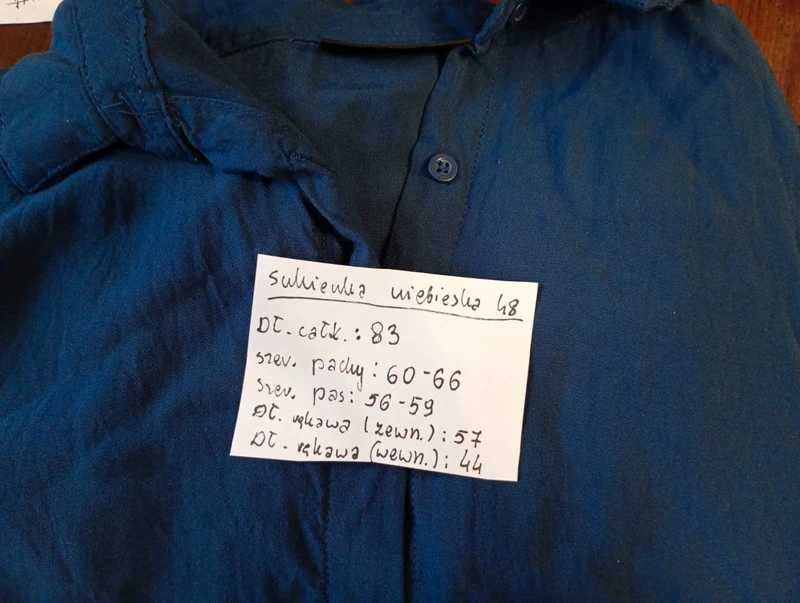 Sukienka niebieska 48
Dł. całk.: 83
szer. pachy: 60-66
szer. pas: 56-59
Dł. rękawa (zewn.): 57
Dł. rękawa (wewn.): 44